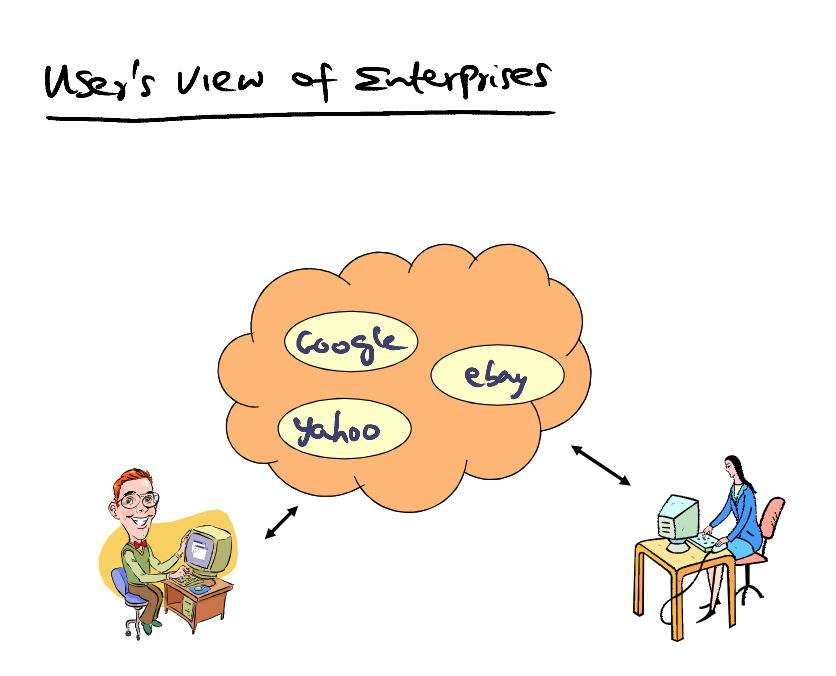 User's view of Enterprises
Google
ebay
yahoo